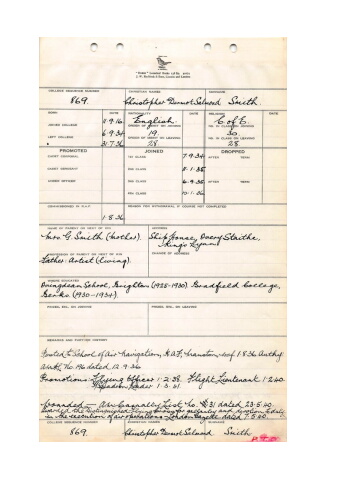 COLLEGE SEQUENCE NUMBER CHRISTIAN NAMES SURNAME
869. Christopher Dermot Salmond Smith.
BORN DATE NATIONALITY RELIGION
11.9.16. English. C of E.
JOINED COLLEGE ORDER OF MERIT ON JOINING NO. IN CLASS ON JOINING
6.9.34 19. 30.
LEFT COLLEGE ORDER OF MERIT ON LEAVING NO. IN CLASS ON LEAVING
31.7.36 28 28
PROMOTED DATE JOINED DATE DROPPED
CADET CORPORAL 1st CLASS 7.9.34 AFTER TERM
CADET SERGEANT 2nd CLASS 1.35 AFTER TERM
UNDER OFFICER 3rd CLASS 6.9.35 AFTER TERM
4th CLASS 1.36
COMMISSIONED IN R.A.F. REASON FOR WITHDRAWAL IF COURSE NOT COMPLETED
1.8.36
NAME OF PARENT OR NEXT OF KIN ADDRESS
Mrs. G. Smith (Mother). Ship House, Overy Staithe,
King's Lynn
PROFESSION OF PARENT OR NEXT OF KIN CHANGE OF ADDRESS
Father Artist (living).
WHERE EDUCATED
Ovingdean School, Brighton (1925-1930). Bradfield College,
Berks. (1930-1934).
REMARKS AND HISTORY
Posted to School of Air Navigation, R.A.F. Manston 1.8.36 Auth:
No. 196 dated 12.9.36
Promotions: Flying Officer 1.2.38. Flight Lieutenant 1.2.40.
Squadron Leader 1.3.41.
wounded – Air Casualty List No. 631 dated 23.5.40
Awarded the Distinguished Flying Cross for gallantry and devotion to duty
in the execution of air operations London Gazette dated 7.5.40.
COLLEGE SEQUENCE NUMBER CHRISTIAN NAMES SURNAME
869. Christopher Dermot Salmond Smith